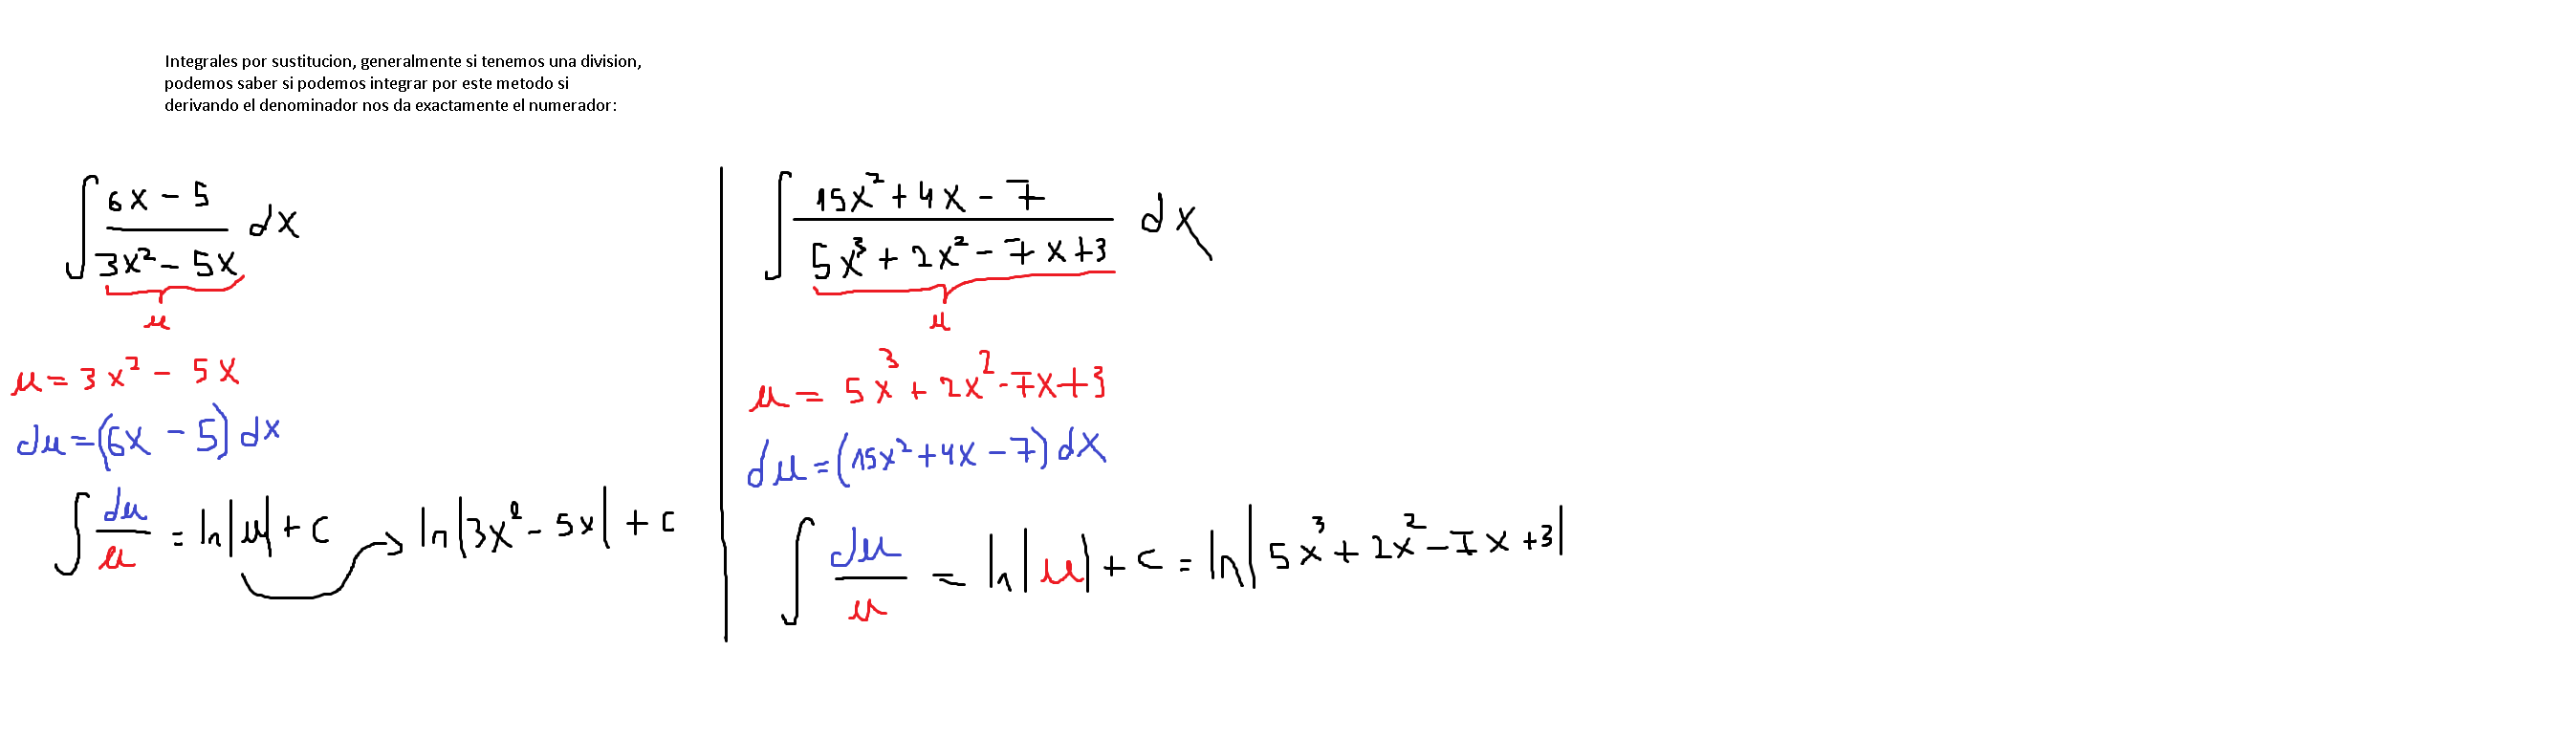 Integrales por sustitucion, generalmente si tenemos una division,
podemos saber si podemos integrar por este metodo si
derivando el denominador nos da exactamente el numerador:
∫ (6x - 5)/(3x² - 5x) dx
u
u = 3x² - 5x
du = (6x - 5) dx
∫ du/u = ln|u| + c → ln|3x² - 5x| + c
∫ (15x² + 4x - 7)/(5x³ + 2x² - 7x + 3) dx
u
u = 5x³ + 2x² - 7x + 3
du = (15x² + 4x - 7) dx
∫ du/u = ln|u| + c = ln|5x³ + 2x² - 7x + 3|